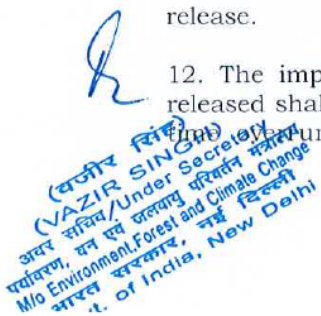 release.
12. The imp
released shal
time overrun
(वजीर सिंह)
(VAZIR SINGH)
अवर सचिव/Under Secretary
पर्यावरण, वन एवं जलवायु परिवर्तन मंत्रालय
M/o Environment, Forest and Climate Change
भारत सरकार, नई दिल्ली
t. of India, New Delhi